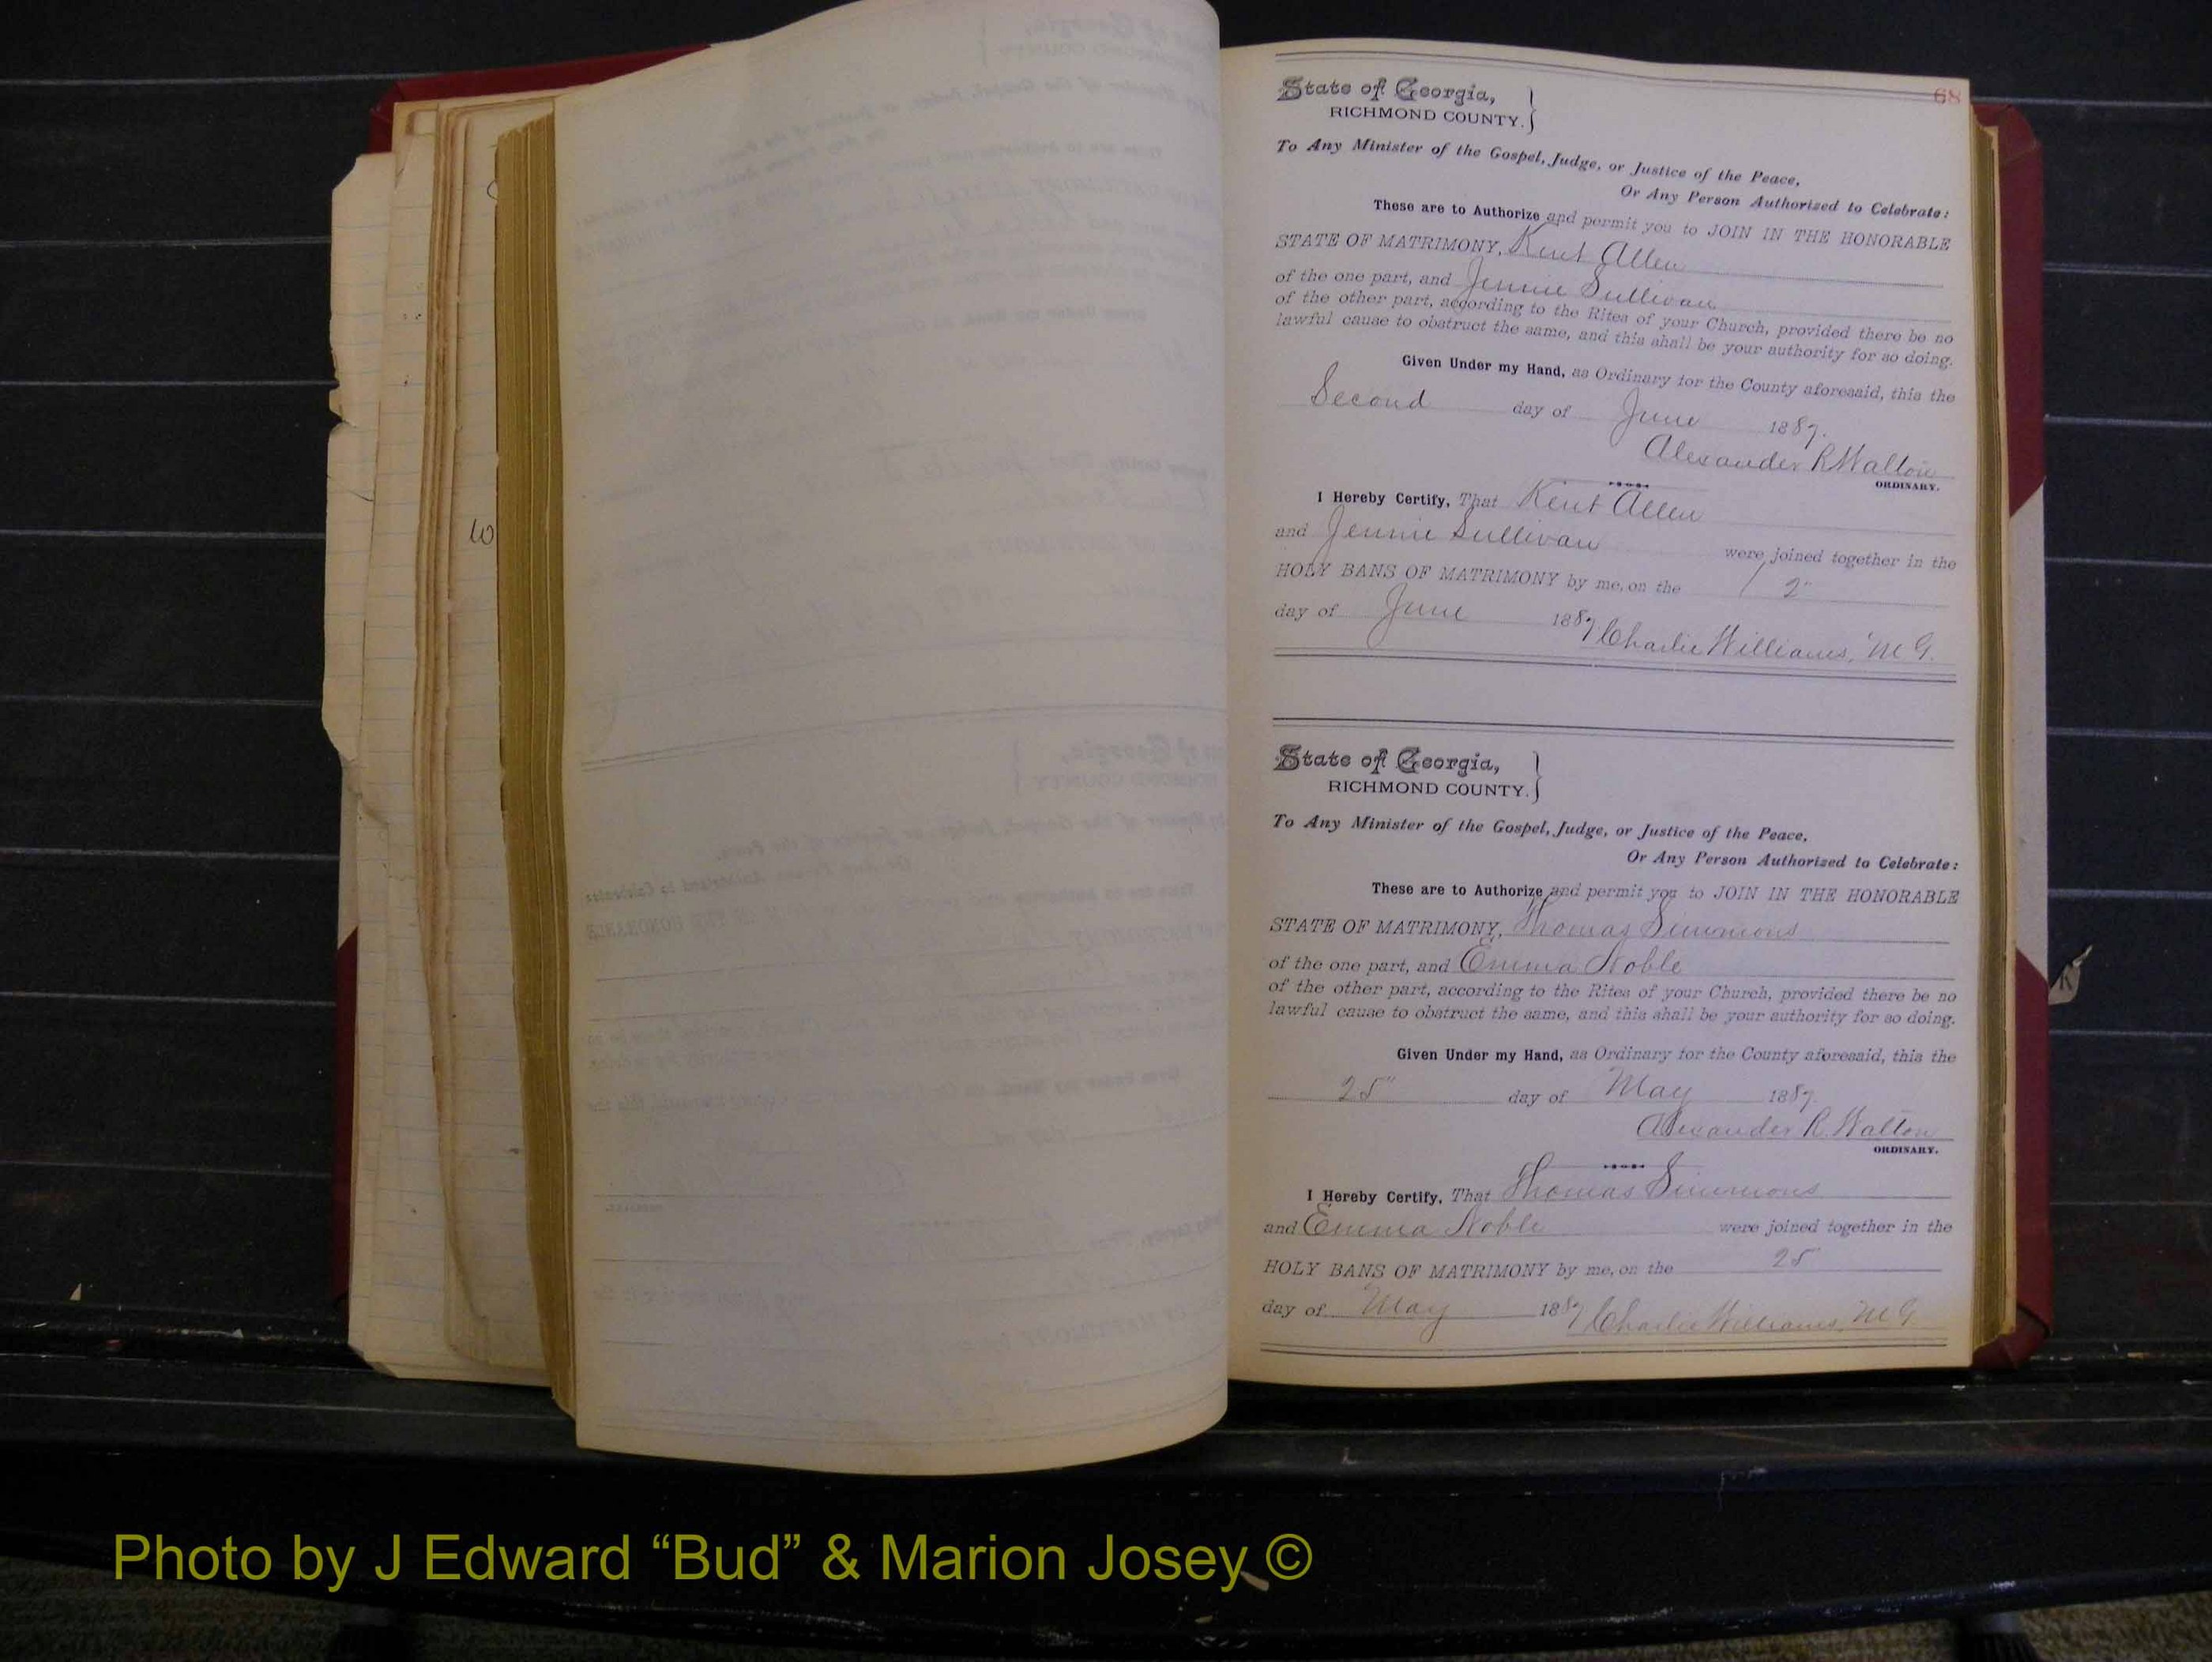 68
State of Georgia,
RICHMOND COUNTY.
To Any Minister of the Gospel, Judge, or Justice of the Peace,
Or Any Person Authorized to Celebrate:
These are to Authorize and permit you to JOIN IN THE HONORABLE
STATE OF MATRIMONY, Kent Allen
of the one part, and Jennie Sullivan
of the other part, according to the Rites of your Church, provided there be no
lawful cause to obstruct the same, and this shall be your authority for so doing.
Given Under my Hand, as Ordinary for the County aforesaid, this the
Second day of June 1887.
Alexander R Walton
ORDINARY.
I Hereby Certify, That Kent Allen
and Jennie Sullivan were joined together in the
HOLY BANS OF MATRIMONY by me, on the 2"
day of June 1887 Charlie Williams, M G.
State of Georgia,
RICHMOND COUNTY.
To Any Minister of the Gospel, Judge, or Justice of the Peace,
Or Any Person Authorized to Celebrate:
These are to Authorize and permit you to JOIN IN THE HONORABLE
STATE OF MATRIMONY, Thomas Simmons
of the one part, and Emma Noble
of the other part, according to the Rites of your Church, provided there be no
lawful cause to obstruct the same, and this shall be your authority for so doing.
Given Under my Hand, as Ordinary for the County aforesaid, this the
25" day of May 1887.
Alexander R. Walton
ORDINARY.
I Hereby Certify, That Thomas Simmons
and Emma Noble were joined together in the
HOLY BANS OF MATRIMONY by me, on the 25
day of May 1887 Charlie Williams, M G.
Photo by J Edward “Bud” & Marion Josey ©